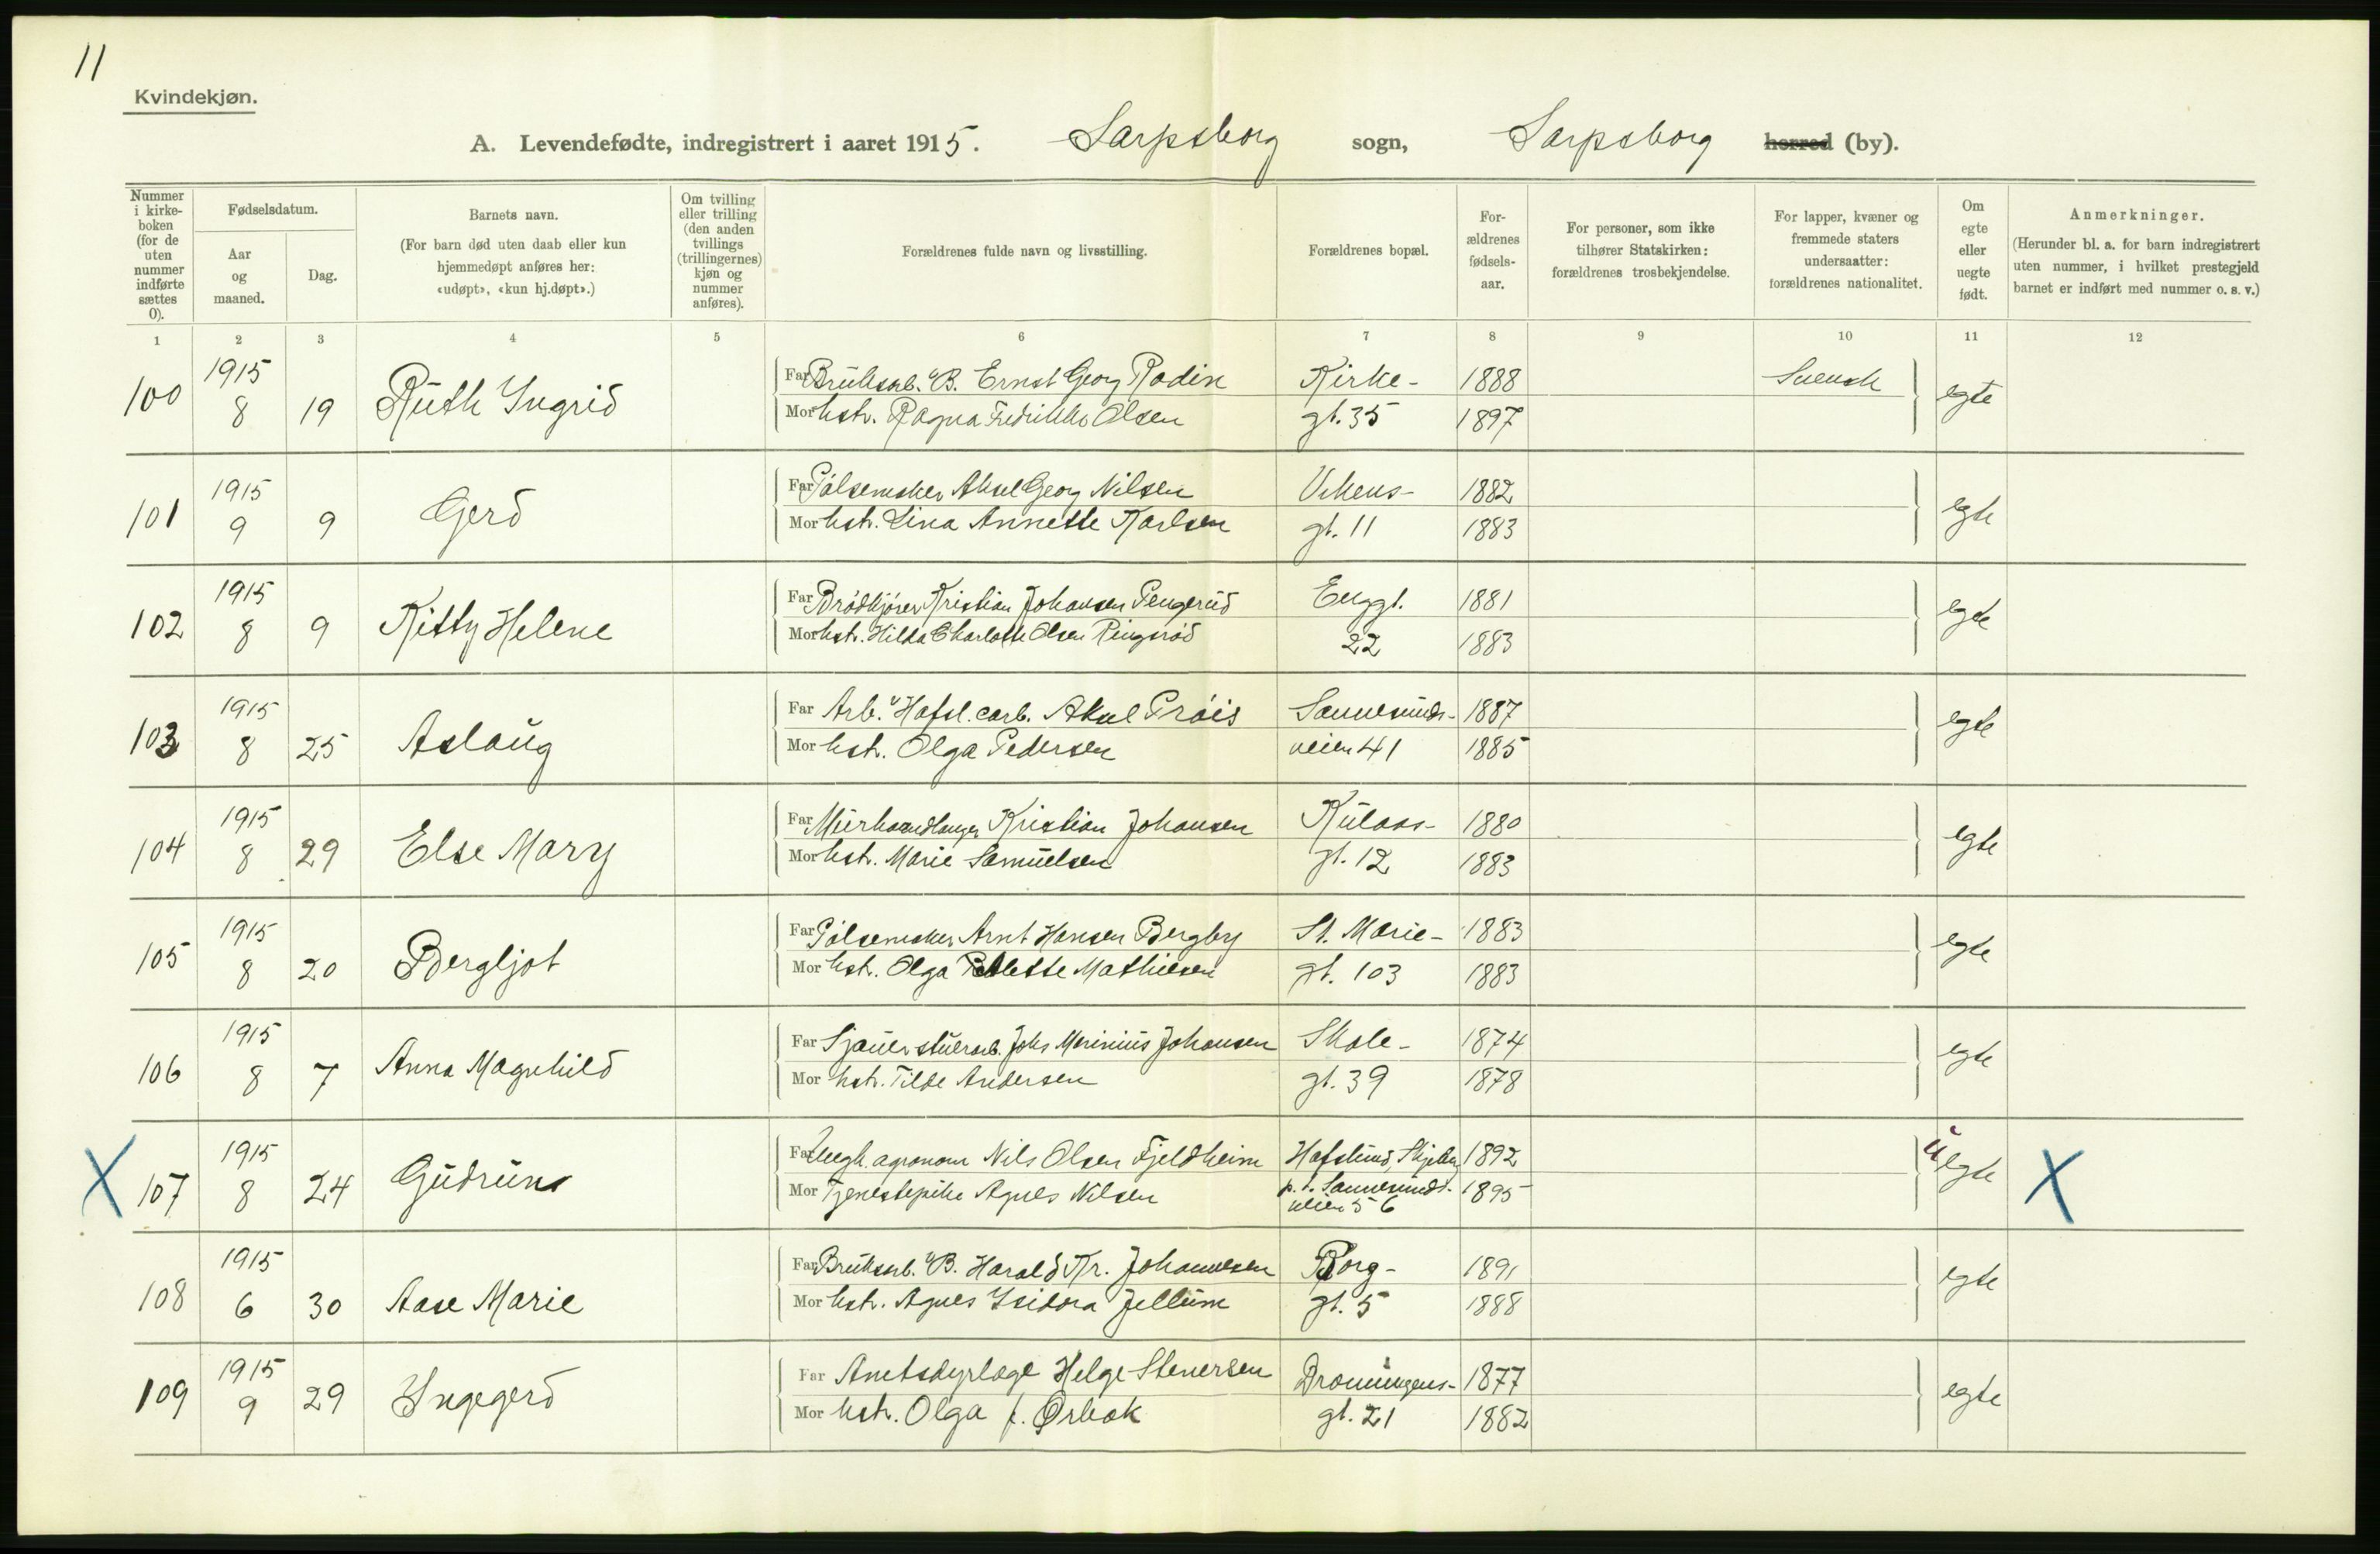 11
Kvindekjøn.
A. Levendefødte, indregistrert i aaret 1915. Sarpsborg sogn, Sarpsborg herred (by).
Nummer i kirke-boken (for de uten nummer indførte sættes 0).
Fødselsdatum.
Aar og maaned.
Dag.
Barnets navn. (For barn død uten daab eller kun hjemmedøpt anføres her: «udøpt», «kun hj.døpt».)
Om tvilling eller trilling (den anden tvillings (trillingernes) kjøn og nummer anføres).
Forældrenes fulde navn og livsstilling.
Forældrenes bopæl.
For-ældrenes fødsels-aar.
For personer, som ikke tilhører Statskirken: forældrenes trosbekjendelse.
For lapper, kvæner og fremmede staters undersaatter: forældrenes nationalitet.
Om egte eller uegte født.
Anmerkninger. (Herunder bl. a. for barn indregistrert uten nummer, i hvilket prestegjeld barnet er indført med nummer o. s. v.)
1 2 3 4 5 6 7 8 9 10 11 12
1915 Far Bruksarb. "B. Ernst Georg Rodin Kirke- 1888 Svensk
100 8 19 Ruth Ingrid Mor hstr. Ragna Fredrikke Olsen gt. 35 1897 egte
1915 Far Pølsemaker Aksel Georg Nilsen 1882
101 9 9 Gerd Mor hstr. Lina Annette Karlsen gt. 11 1883 egte
1915 Far Brødkjører Kristian Johansen Pengerud Enggt. 1881
102 8 9 Kitty Helene Mor hstr. Hilda Charlotte Olsen Ringsrød 22 1883 egte
1915 Far Arb. "Hafsl. carb. Aksel Prøis Sannesunds- 1887
103 8 25 Aslaug Mor hstr. Olga Pedersen veien 41 1885 egte
1915 Far Murhaandlanger Kristian Johansen Kulaas- 1880
104 8 29 Else Mary Mor hstr. Marie Samuelsen gt. 12 1883 egte
1915 Far Pølsemaker Arnt Hansen Bergby St. Marie- 1883
105 8 20 Bergljot Mor hstr. Olga Mathiesen gt. 103 1883 egte
1915 Far Sjauer Johs Marinius Johansen Skole- 1874
106 8 7 Anna Magnhild Mor hstr. Tilde Andersen gt. 39 1878 egte
1915 Far Ungk. agronom Nils Olsen Fjeldheim Hafslund, Skjeberg 1892
X 107 8 24 Gudrun Mor Tjenestepike Agnes Nilsen p. t. Sannesunds- 1895 uegte X
veien 56
1915 Far Bruksarb. "B. Harald Kr. Johannesen Borg- 1891
108 6 30 Aase Marie Mor hstr. Agnes Isidora Jellum gt. 5 1888 egte
1915 Far Amtsdyrlæge Helge Stenersen Dronningens- 1877
109 9 29 Ingegerd Mor hstr. Olga f. Ørbæk gt. 21 1882 egte